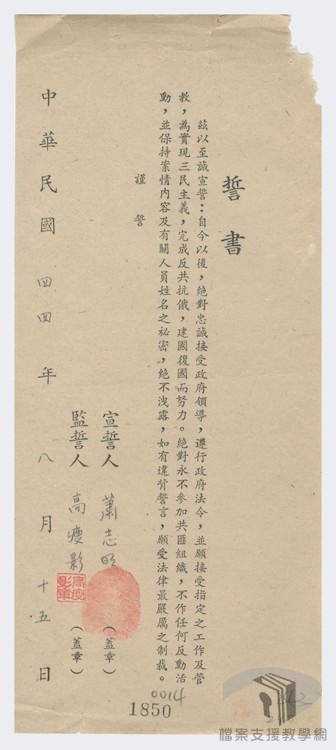 誓書
茲以至誠宣誓：自今以後，絕對忠誠接受政府領導，遵行政府法令，並願接受指定之工作及管
教，為實現三民主義，完成反共抗俄，建國復國而努力。絕對永不參加共匪組織，不作任何反動活
動，並保持案情內容及有關人員姓名之秘密，絕不洩露，如有違背誓言，願受法律最嚴厲之制裁。
謹誓
宣誓人 蕭志明 （蓋章）
監誓人 高瘦影 （蓋章）
中華民國四四年八月十五日
0014
1850
檔案支援教學網